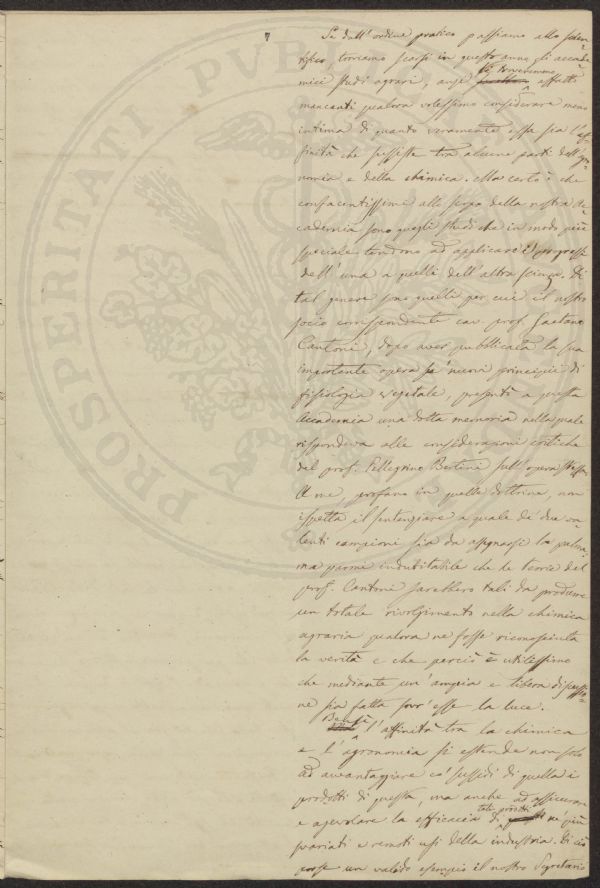 Se dall'ordine pratico passiamo allo scien-
tifico, troviamo scarsi in questo anno gli accade-
mici studi agrari, anzi li troveremmo affatto
mancanti qualora volessimo considerare meno
intima di quanto veramente essa sia l'af-
finità che sussiste tra alcune parti dell'agro-
nomia e della chimica. Ma certo è che
confacentissimi allo scopo della nostra Ac-
cademia sono quegli studi che in modo più
speciale tendono ad applicare i progressi
dell'una a quelli dell'altra scienza. Di
tal genere sono quelli per cui il nostro
socio corrispondente cav. prof. Gaetano
Cantoni, dopo aver pubblicata la sua
importante opera su' nuovi principii di
fisiologia vegetale, presentò a questa
Accademia una dotta memoria nella quale
rispondeva alle considerazioni critiche
del prof. Pellegrino Bertini sull'opera stessa.
A me, profano in quelle dottrine, non
ispetta il sentenziare a quale de' due va-
lenti campioni sia da assegnarsi la palma,
ma parmi indubitabile che le teorie del
prof. Cantoni sarebbero tali da produrre
un totale rivolgimento nella chimica
agraria qualora ne fosse riconosciuta
la verità e che perciò è utilissimo
che mediante un'ampia e libera discussio-
ne sia fatta sovr'esse la luce.
l'affinità tra la chimica
e l'agronomia si estende non solo
ad avvantaggiare co' sussidi di quella i
prodotti di questa, ma anche ad assicurare
e agevolare la efficacia di tali prodotti ne' più
svariati e remoti usi della industria. Di ciò
porse un valido esempio il nostro Segretario